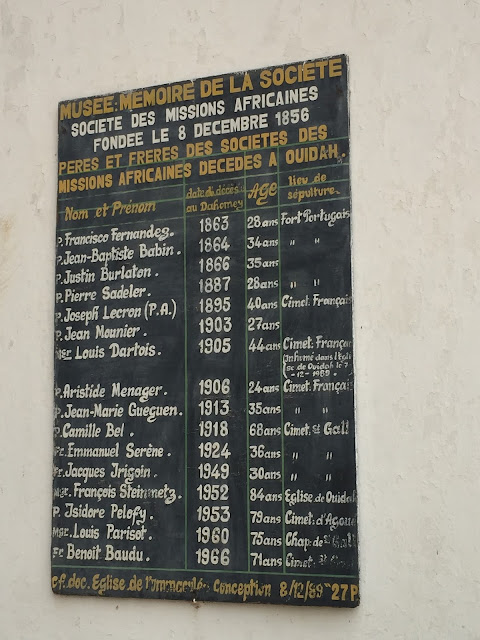 MUSEE: MEMOIRE DE LA SOCIETE
SOCIETE DES MISSIONS AFRICAINES
FONDEE LE 8 DECEMBRE 1856
PERES ET FRERES DES SOCIETES DES
MISSIONS AFRICAINES DECEDES A OUIDAH
Nom et Prénom date du décès au Dahomey AGE lieu de sépulture
P. Francisco Fernandez. 1863 28ans Fort Portugais
P. Jean-Baptiste Babin. 1864 34ans " "
P. Justin Burlaton. 1866 35ans
P. Pierre Sadeler. 1887 28ans " "
P. Joseph Lecron (P.A.) 1895 40ans Cimet. Français
P. Jean Mounier. 1903 27ans
Mgr Louis Dartois. 1905 44ans Cimet. Françai
(inhumé dans l'Egli
se de Ouidah le 7
-12-1989.
P. Aristide Menager. 1906 24ans Cimet. Français
P. Jean-Marie Gueguen. 1913 35ans " "
P. Camille Bel. 1918 68ans Cimet. St Gall
Fr. Emmanuel Serène. 1924 36ans " "
Fr. Jacques Irigoin. 1949 30ans " "
Mgr. François Steinmetz. 1952 84ans Eglise de Ouidah
P. Isidore Pelofy. 1953 79ans Cimet. d'Agoué
Mgr. Louis Parisot. 1960 75ans Chap. de St Gall
Fr. Benoit Baudu. 1966 71ans Cimet.
cf. doc. Eglise de l'Immaculée Conception 8/12/89 "27P.